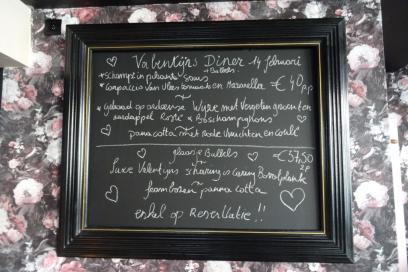 Valentijns Diner 14 februari
+ Bubbels.
* schampi in pikante Saus
* Carpaccio van Vlees tomaat en Mozarella € 40 p.p
* gebraad op ardeense Wijze met Vergeten groenten
aardappel & Boschampignons
panna cotta met rode Vruchten en
glaasje Bubbels €57,50
2p
Luxe Valentijns Sharing is Caring Borrelplank
frambozen panna cotta
enkel op Reservatie !!